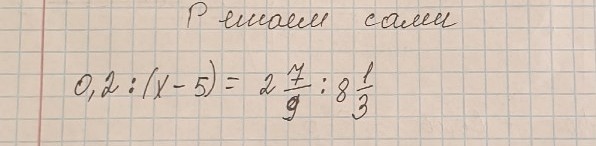 Решаем сами
0,2 : (x - 5) = 2 7/9 : 8 1/3